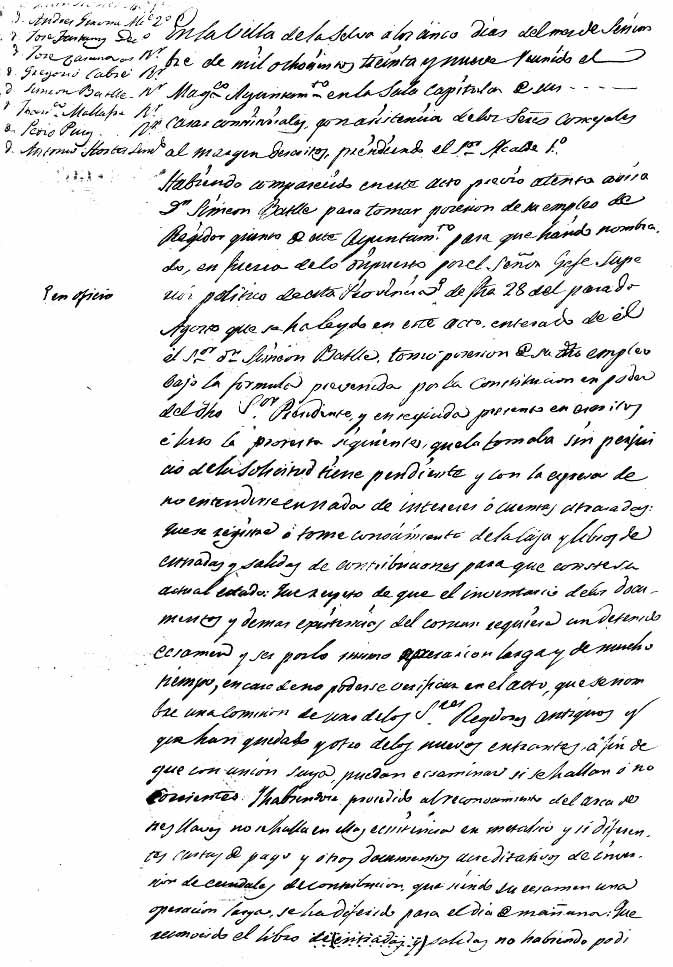 D. Andres Gravina Alc.e 2.º
D. Jose
D. Jose Casanovas R.r
D. Gregorio Cabré R.r
D. Simeon Batlle R.r
D. Fran.co Mallafré R.r
D. Pedro Puig R.r
D. Antonio Hortet Sind.o
En la Villa de la Selva a los cinco dias del mes de Setiem
bre de mil ochocientos treinta y nueve reunido el
Mag.co Ayuntam.to en la Sala capitular de sus
casas consistoriales, con asistencia de los Señores concejales
al margen descritos, presidiendo el S.or Alcalde 1.º
Habiendo comparecido en este acto previo atento aviso
D.n Simeon Batlle para tomar posesion de su empleo de
Regidor quinto de este Ayuntam.to para que ha sido nombra
do, en fuerza de lo dispuesto por el Señor Gefe Supe
rior politico de esta Provincia de fha 28 del pasado
Agosto que se ha leydo en este acto, enterado de él
el S.or D.n Simeon Batlle, tomó posesion de su dho empleo
bajo la formula prevenida por la Constitucion en poder
del dho S.or Presidente, y en seguida presentó en escritos
é hizo la protesta siguiente, que la tomaba sin perjui
cio de la solicitud tiene pendiente y con la expresa de
no entenderse en nada de intereses ó cuentas atrasadas:
Que se registre ó tome conocimiento de la Caja y libros de
entradas y salidas de contribuciones para que conste su
actual estado: Que respeto de que el inventario de los docu
mentos y demas existencias del comun requiera un detenido
ecsamen y ser por lo mismo operacion larga y de mucho
tiempo, en caso de no poderse verificar en el acto, que se nom
bre una Comision de uno de los S.res Regidores antiguos y
que han quedado y otro de los nuevos entrantes, á fin de
que con union suya, puedan ecsaminar si se hallan ó no
corrientes. Y habiendose procedido al reconocimiento del arca de
tres llaves no se halla en ellas ecsistencia en metalico y si diferen
tes cartas de pago y otros documentos acreditativos de inver
sion de caudales de contribucion, que siendo su ecsamen una
operacion larga, se ha diferido para el dia de mañana: Que
reconocido el libro de entradas y salidas no habiendo podi
P. en oficio